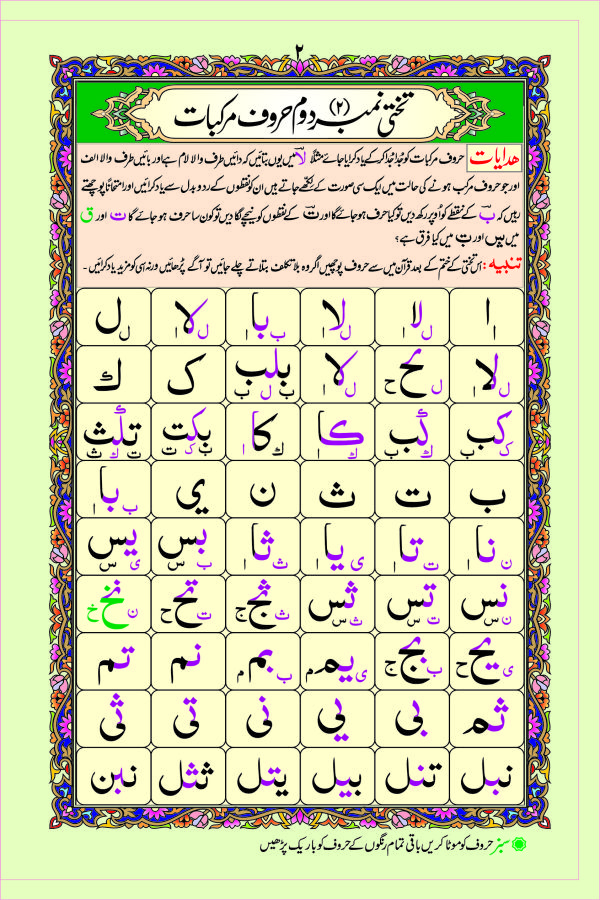 ۲
تختی نمبر دوم (۲) حروف مرکبات
ھدایات حروف مرکبات کو جُدا جُدا کر کے یاد کرایا جائے مثلاً لا میں یوں بتائیں کہ دائیں طرف والا لام ہے اور بائیں طرف والا الف
اور جو حروف مرکب ہونے کی حالت میں ایک سی صورت کے لکھے جاتے ہیں ان کو نقطوں کے ردوبدل سے یاد کرائیں اور امتحاناً پوچھتے
رہیں کہ ب کے نقطے کو اوپر رکھ دیں تو کیا حرف ہو جائے گا اور ت کے نقطوں کو نیچے لگا دیں تو کون سا حرف ہو جائے گا ت اور ق
میں ہیں اور تِ میں کیا فرق ہے؟
تنبیہ: اس تختی کے ختم کے بعد قرآن میں سے حروف پوچھیں اگر وہ بلا تکلف بتلاتے چلے جائیں تو آگے پڑھائیں ورنہ اسی کو مزید یاد کرائیں۔
ا لا ل ا لا ل ا با ب ا لا ل ا ل
لا ل ا لح ل ح لا ل ا بلب ب ل ب ک ك
کب ک ب كب ك ب كا ك ا كا ك ا بکت ب ک ت تلث ت ك ث
ب ت ث ن ی با ب ا
نا ن ا تا ت ا یا ی ا ثا ث ا بس ب س یس ی س
نس ن س تس ت س ثس ث س ثج ث ج تح ت ح نخ ن خ
یح ی ح بج ب ج یم ی م بم ب م نم تم
ثم بی یی نی تی ثی
نبل تنل بیل یتل ثثل نبن
سبز حروف کو موٹا کریں باقی تمام رنگوں کے حروف کو باریک پڑھیں